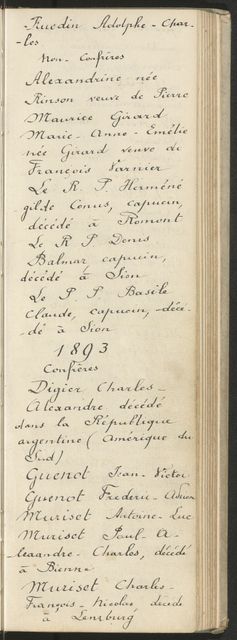 -Ruedin Adolphe-Char-
-les
Non-Confrères
Alexandrine née
Rinson veuve de Pierre
Maurice Girard
Marie-Anne-Emélie
née Girard veuve de
François Varnier
Le R. P. Herméné
gilde Comus, capucin,
décédé à Romont
Le R P. Denis
Balmar capucin,
décédé à Sion
Le P. P. Basile
Claude, capucin, décé-
-dé à Sion
1893
Confrères
Digier Charles-
Alexandre décédé
dans la République
argentine (Amérique du
Sud)
Guenot Jean-Victor
Guenot Frédéric-
Muriset Antoine-Luc
Muriset Paul-A-
lexandre-Charles, décédé
à Bienne
Muriset Charles-
François-Nicolas, décédé
à Lenzburg